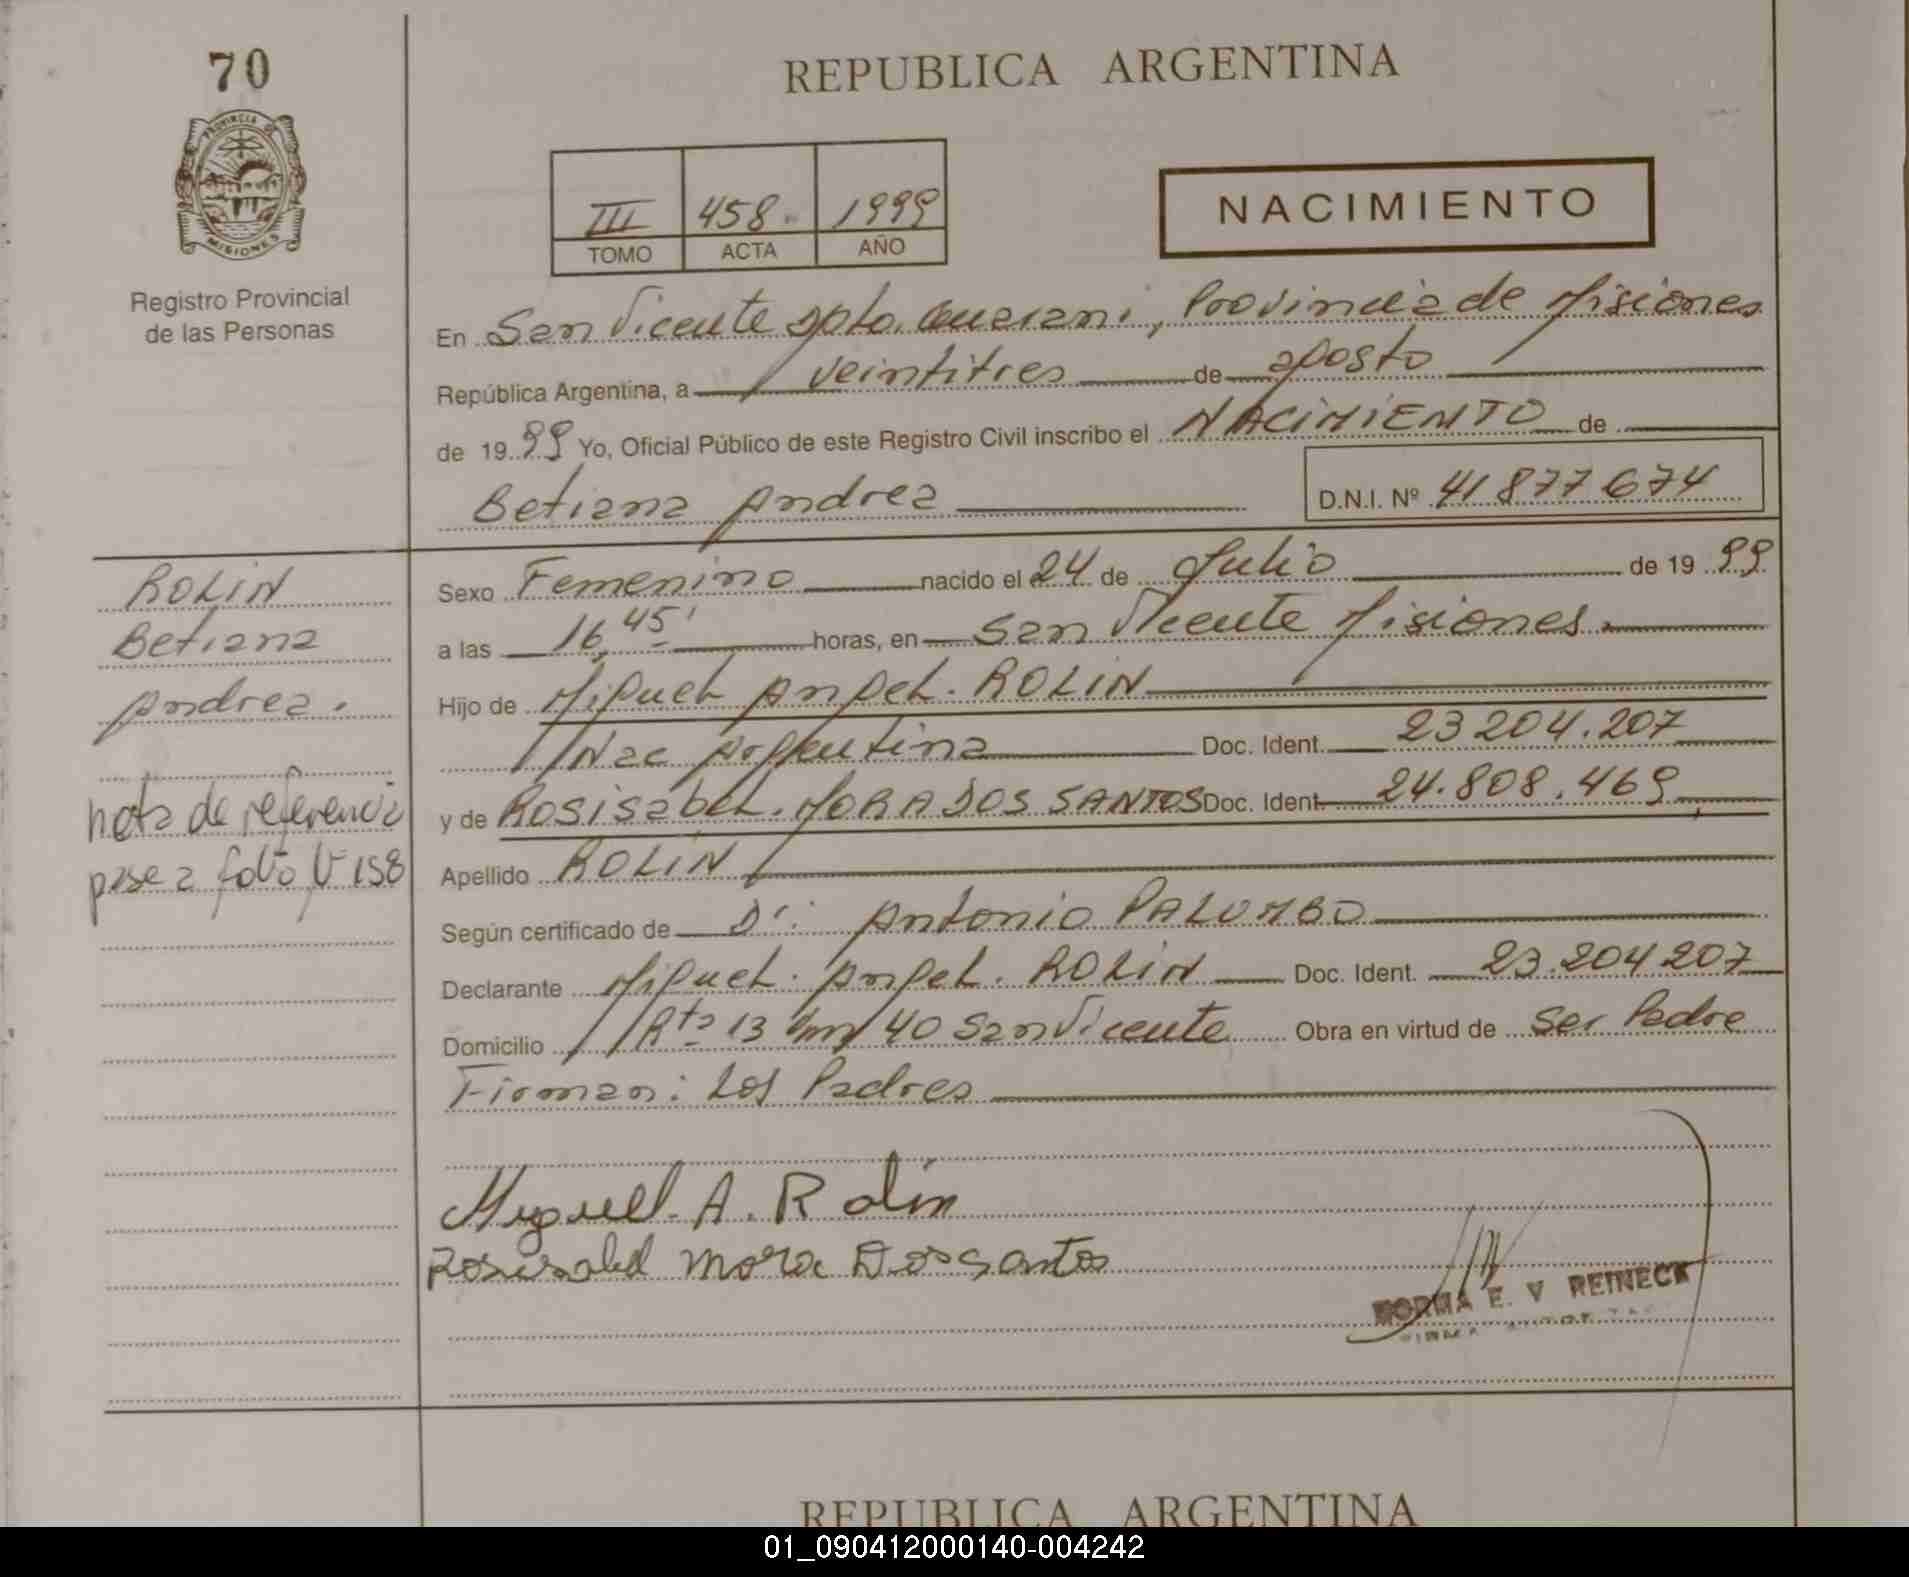 70
PROVINCIA DE
MISIONES
Registro Provincial
de las Personas
REPUBLICA ARGENTINA
III 458 1999
TOMO ACTA AÑO
NACIMIENTO
En San Vicente Dpto. Guarani, Provincia de Misiones
República Argentina, a veintitres de agosto
de 1999 Yo, Oficial Público de este Registro Civil inscribo el NACIMIENTO de
Betiana Andrea D.N.I. Nº 41877674
ROLIN
Betiana
Andrea.
nota de referencia
pase a folio 158
Sexo Femenino nacido el 24 de Julio de 1999
a las 16,45' horas, en San Vicente Misiones.
Hijo de Miguel Angel. ROLIN
Nac Argentina Doc. Ident. 23204.207
y de ROSisabel. MORA DOS SANTOS Doc. Ident 24.808.469
Apellido ROLIN
Según certificado de Dr: Antonio PALOMBO
Declarante Miguel. Angel. ROLIN Doc. Ident. 23.204207
Domicilio Rta 13 Km 40 San Vicente Obra en virtud de Ser Padre
Firman: Los Padres
Miguel. A. Rolin
Rosisabel Mora Dos santos
NORMA E. V REINECK
REPUBLICA ARGENTINA
01_090412000140-004242